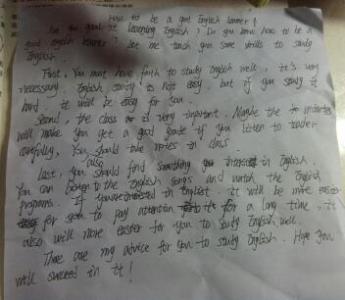 How to be a good English learner?
Are you good at learning English? Do you know how to be a
good English learner? Let me teach you some skills to study
English.
First, You must have faith to study English well. It's very
necessary. English study is not easy. but if you study it
hard. it will be easy for you.
Second, the class is very important. Maybe the
will make you get a good grade if you listen to teacher
carefully, You should take notes in class.
Last, you should also find something you interest in English.
You can listen to the English songs and watch the English
programs. If you interested in English. it will be more easier
for you to pay attention to it for a long time. it
also will more easier for you to study English well.
These are my advice for you to study English. Hope you
will succeed in it!